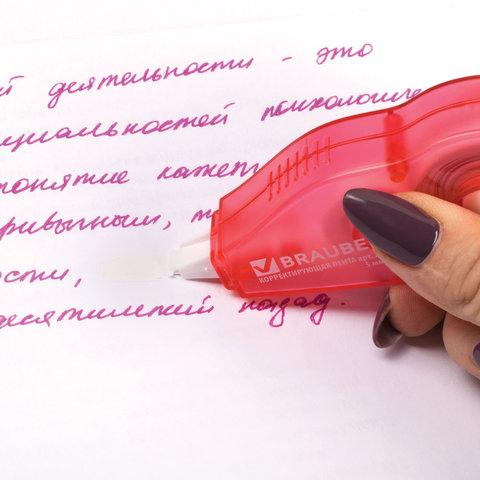 й деятельности - это
циальностей психологиче
понятие кажет
ривычным, т
ости,
десятилетий назад.
BRAUBE
КОРРЕКТИРУЮЩАЯ ЛЕНТА арт.
5 мм